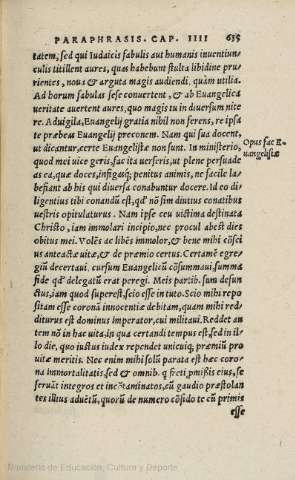 PARAPHRASIS. CAP. IIII 635
tatem, sed qui Iudaicis fabulis aut humanis inuentiun-
culis titillent aures, quas habebunt stulta libidine pru-
rientes, noua & arguta magis audiendi, quàm utilia.
Ad horum fabulas sese conuertent, & ab Euangelica
ueritate auertent aures, quo magis tu in diuersum nite
re. Aduigila, Euangelij gratia nihil non ferens, re ipsa
te præbeas Euangelij preconem. Nam qui sua docent,
ut dicantur, certe Euangelistæ non sunt. In ministerio,
Opus fac E-
uangelistæ
quod mei uice geris, fac ita uerseris, ut plene persuade
as ea, quæ doces, infigasq; penitus animis, ne facile la-
befiant ab his qui diuersa conabuntur docere. Id eo di-
ligentius tibi conandũ est, qd' nõ sim diutius conatibus
uestris opitulaturus. Nam ipse ceu uictima destinata
Christo, iam immolari incipio, nec procul abest dies
obitus mei. Volẽs ac libẽs immolor, & bene mihi cõsci
us anteactæ uitæ, & de præmio certus. Certamẽ egre-
giũ decertaui, cursum Euangelicũ cõsummaui summa
fide qd' delegatũ erat peregi. Meis partib. sum defun
ctus, iam quod superest, scio esse in tuto. Scio mihi repo
sitam esse coronã innocentiæ debitam, quam mihi red
diturus est dominus imperator, cui militaui. Reddet an
tem nõ in hac uita, in qua certandi tempus est, sed in il-
lo die, quo iustus iudex rependet unicuiq; præmiũ pro
uitæ meritis. Nec enim mihi solũ parata est hæc coro-
na immortalitatis, sed & omnib. q freti pmissis eius, se
seruãt integros et incõtaminatos, cũ gaudio præstolan
tes illius aduẽtũ, quorũ de numero cõfido te cũ primis
esse
Ministerio de Educación, Cultura y Deporte